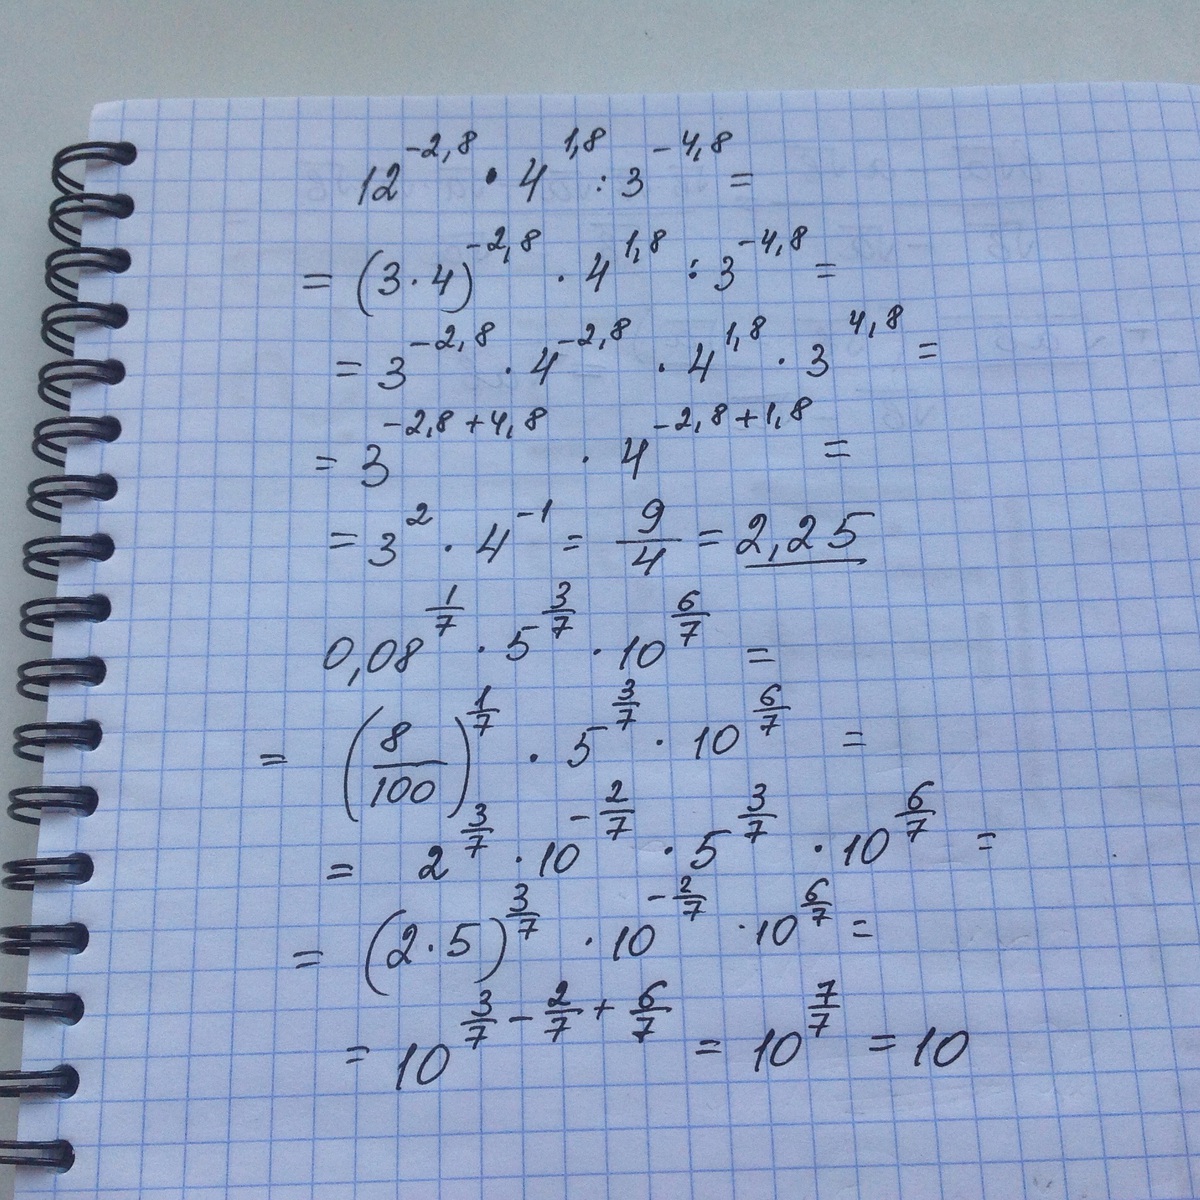 12^{-2,8} · 4^{1,8} : 3^{-4,8} =
= (3·4)^{-2,8} · 4^{1,8} : 3^{-4,8} =
= 3^{-2,8} · 4^{-2,8} · 4^{1,8} · 3^{4,8} =
= 3^{-2,8+4,8} · 4^{-2,8+1,8} =
= 3^2 · 4^{-1} = \frac{9}{4} = 2,25
0,08^{\frac{1}{7}} · 5^{\frac{3}{7}} · 10^{\frac{6}{7}} =
= (\frac{8}{100})^{\frac{1}{7}} · 5^{\frac{3}{7}} · 10^{\frac{6}{7}} =
= 2^{\frac{3}{7}} · 10^{-\frac{2}{7}} · 5^{\frac{3}{7}} · 10^{\frac{6}{7}} =
= (2·5)^{\frac{3}{7}} · 10^{-\frac{2}{7}} · 10^{\frac{6}{7}} =
= 10^{\frac{3}{7} - \frac{2}{7} + \frac{6}{7}} = 10^{\frac{7}{7}} = 10